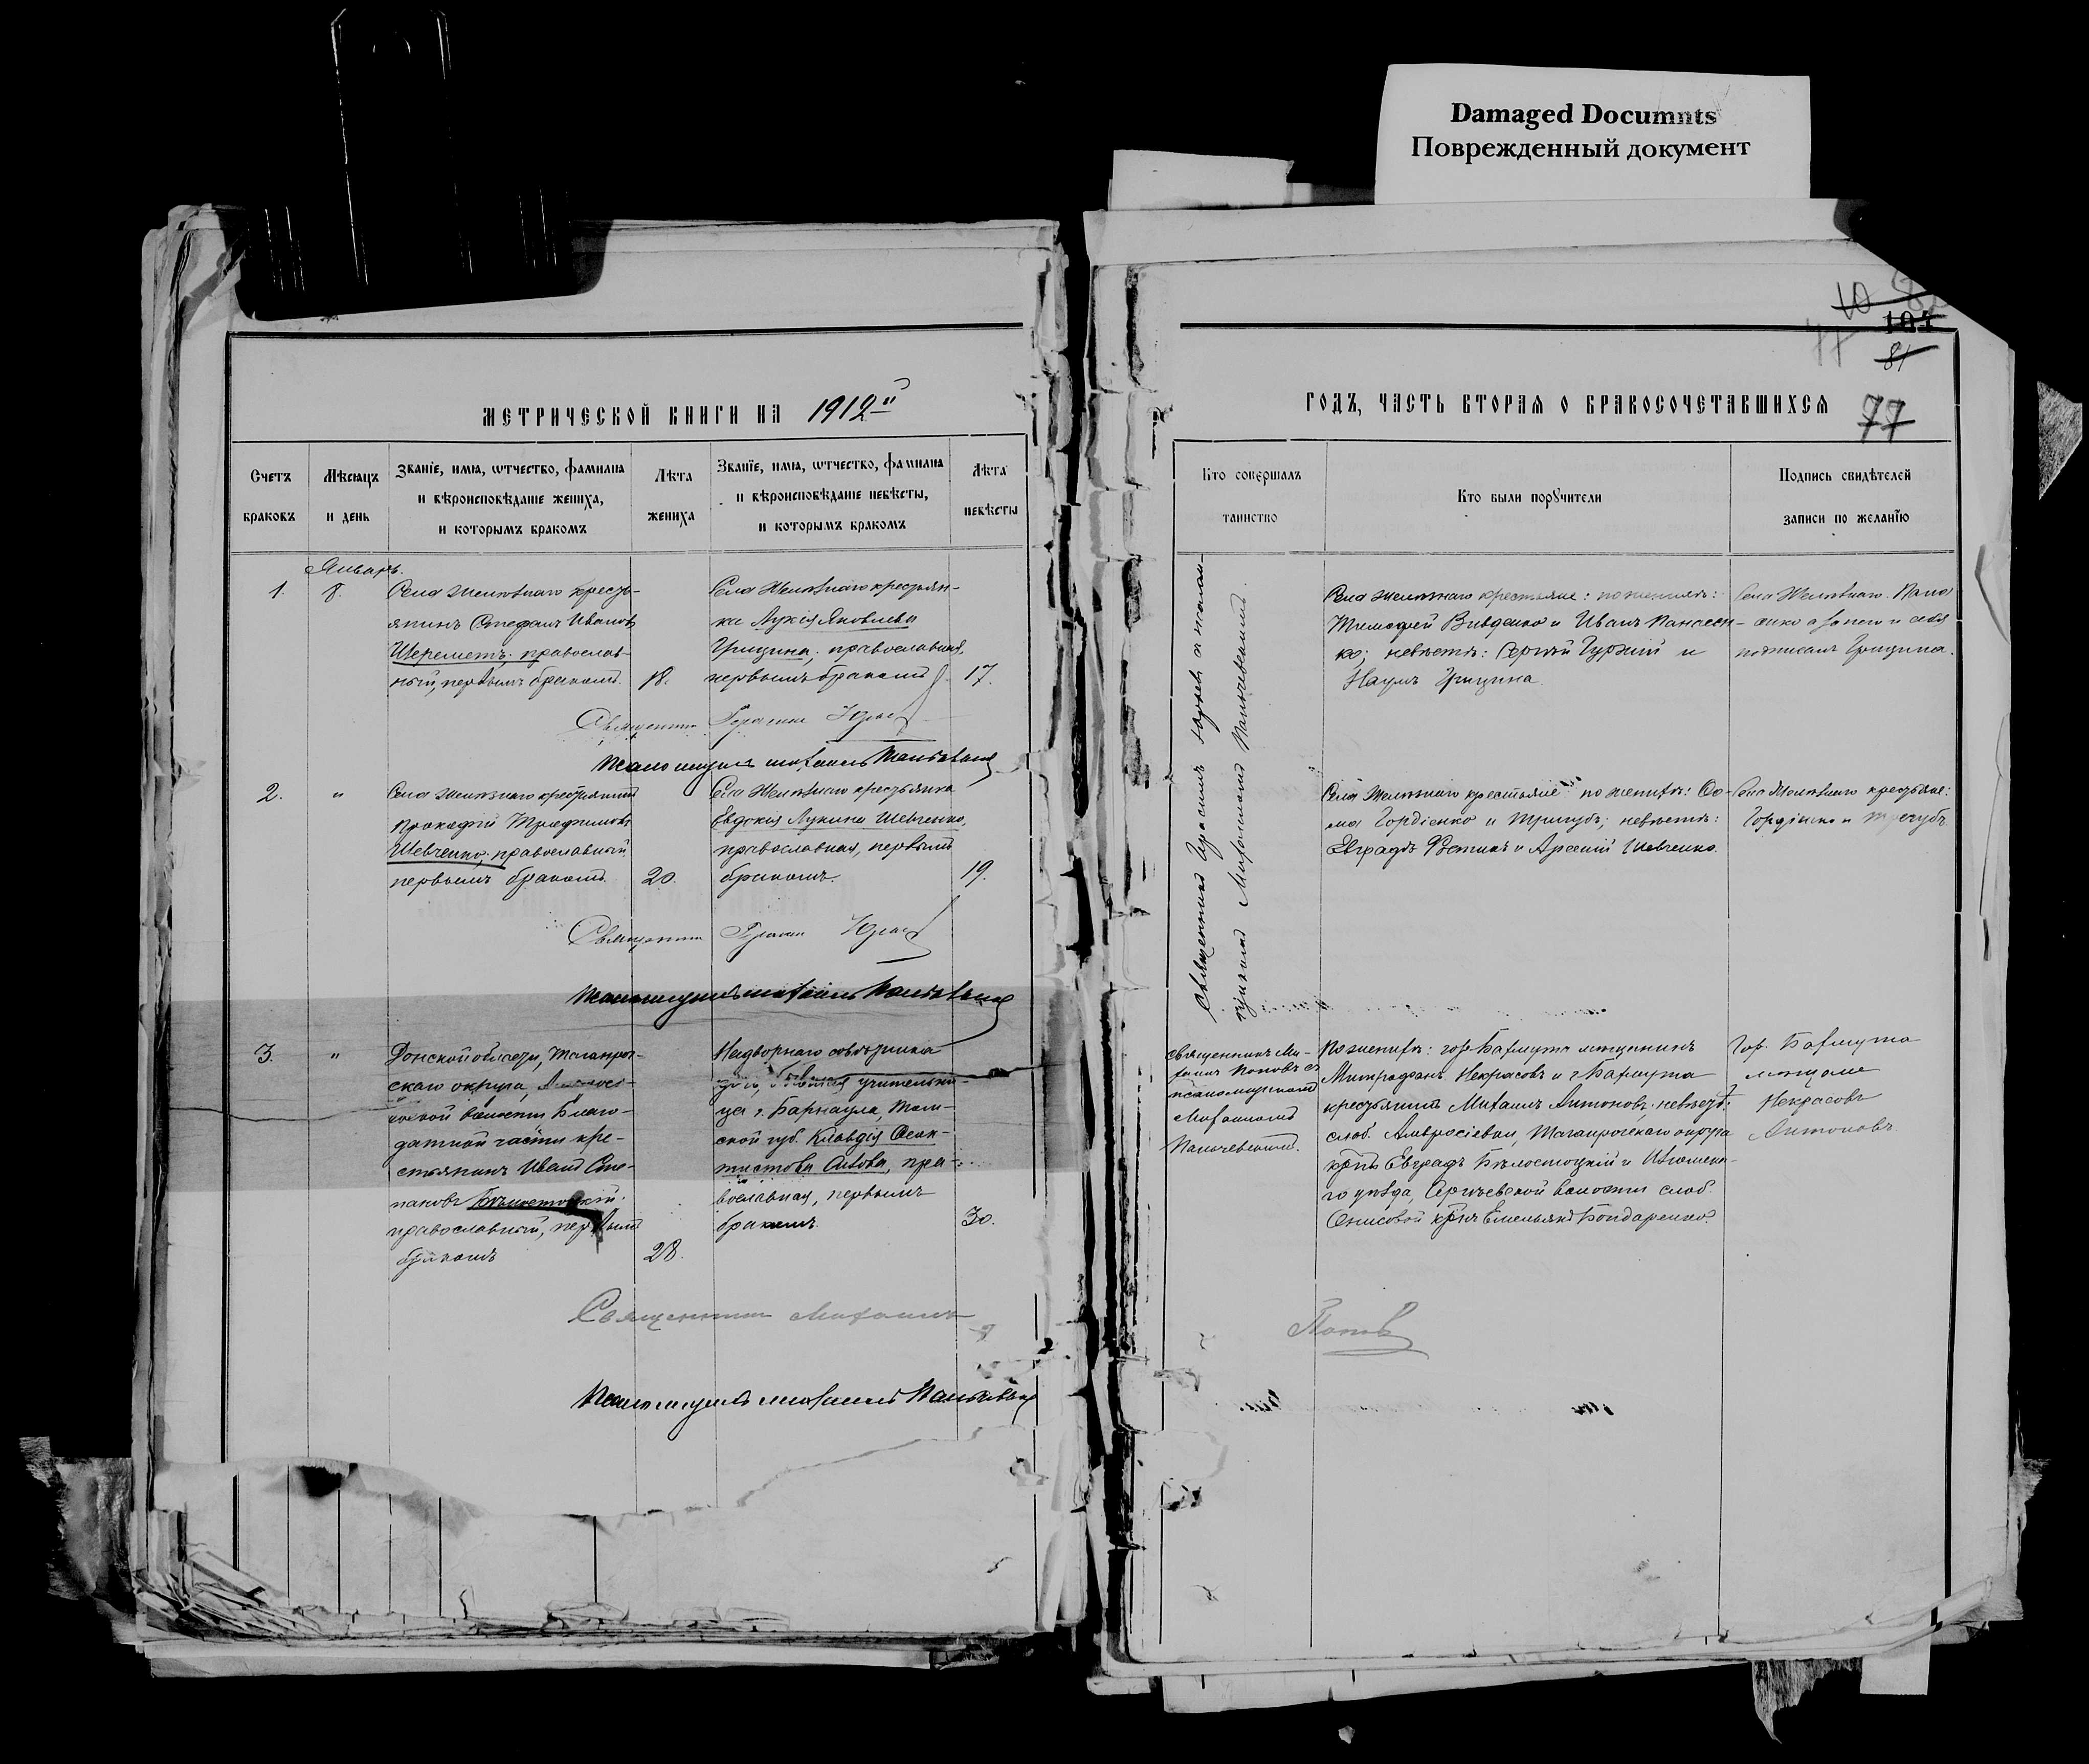 Damaged Documnts
Поврежденный документ
104
81
77
МЕТРИЧЕСКОЙ КНИГИ НА 1912й
ГОДЪ, ЧАСТЬ ВТОРАЯ О БРАКОСОЧЕТАВШИХСЯ
Счетъ браковъ
Мѣсяцъ и день
Званіе, имя, отчество, фамилія
и вѣроисповѣданіе жениха,
и которымъ бракомъ
Лѣта жениха
Званіе, имя, отчество, фамилія
и вѣроисповѣданіе невѣсты,
и которымъ бракомъ
Лѣта невѣсты
Кто совершалъ
таинство
Кто были поручители
Подпись свидѣтелей
записи по желанію
Январь.
1.
8.
Села Желѣзнаго кресть-
янинъ Стефанъ Ивановъ
Шереметъ, православ-
ный, первымъ бракомъ.
18.
Села Желѣзнаго крестьян-
ка Лукія Яковлева
Грицина, православная,
первымъ бракомъ
17.
Священникъ Герасимъ
Псаломщикъ Михаилъ
Села Желѣзнаго крестьяне: по женихѣ:
Тимофей Вивденко и Иванъ Панасен-
ко; невѣстѣ: Сергѣй Гуржій и
Наумъ Грицина
Села Желѣзнаго Пана
сенко а за него и себя
подписалъ Грицина.
2.
"
Села Желѣзнаго крестьянинъ
Прокофій Трофимовъ
Шевченко, православный
первымъ бракомъ.
20.
Села Желѣзнаго крестьянка
Евдокія Лукина Шевченко,
православная, первымъ
бракомъ.
19.
Священникъ
Псаломщикъ Михаилъ
Священникъ Герасимъ
Села Желѣзнаго крестьяне по женихѣ: Ѳо-
ма Гордіенко и Тригубъ; невѣстѣ:
Евграфъ Фостикъ и Арсеній Шевченко.
Села Желѣзнаго крестьяне:
Гордіенко и Тригубъ
3.
"
Донской области, Таганрог-
скаго округа,
волости Благо-
датной части кре-
стьянинъ Иванъ Сте-
пановъ Бѣлостоцкій
православный, первымъ
бракомъ
28.
Надворнаго совѣтника
учительни-
ца г. Барнаула, Том-
ской губ. Клавдія Ѳеок-
тистова пра-
вославная, первымъ
бракомъ
30.
Священникъ Ми-
хаилъ Поповъ съ
псаломщикомъ
Михаиломъ
По женихѣ: гор. Бахмута мѣщанинъ
Митрофанъ Некрасовъ и г. Бахмута
крестьянинъ Михаилъ Антоновъ; невѣстѣ:
слоб. Амвросіевки, Таганрогскаго округа
крнъ Евграфъ Бѣлостоцкій и Изюмска-
го уѣзда, волости слоб.
крнъ Емельянъ Бондаренко.
Гор. Бахмута
мѣщане
Некрасовъ
Антоновъ.
Священникъ Михаилъ
Поповъ
Псаломщикъ Михаилъ